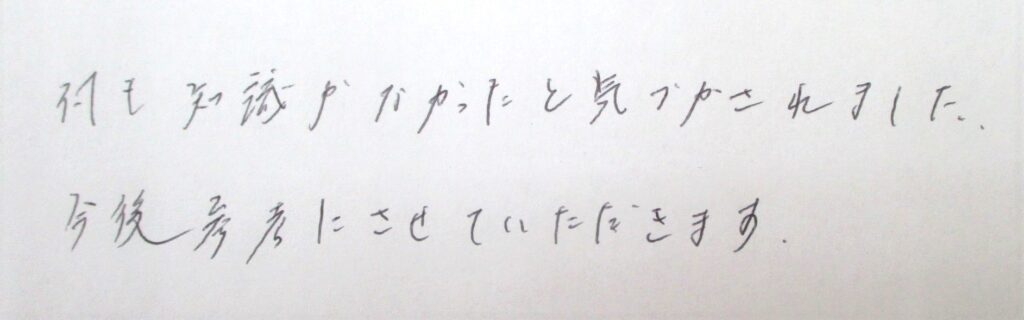 何も知識がなかったと気づかされました。
今後参考にさせていただきます。